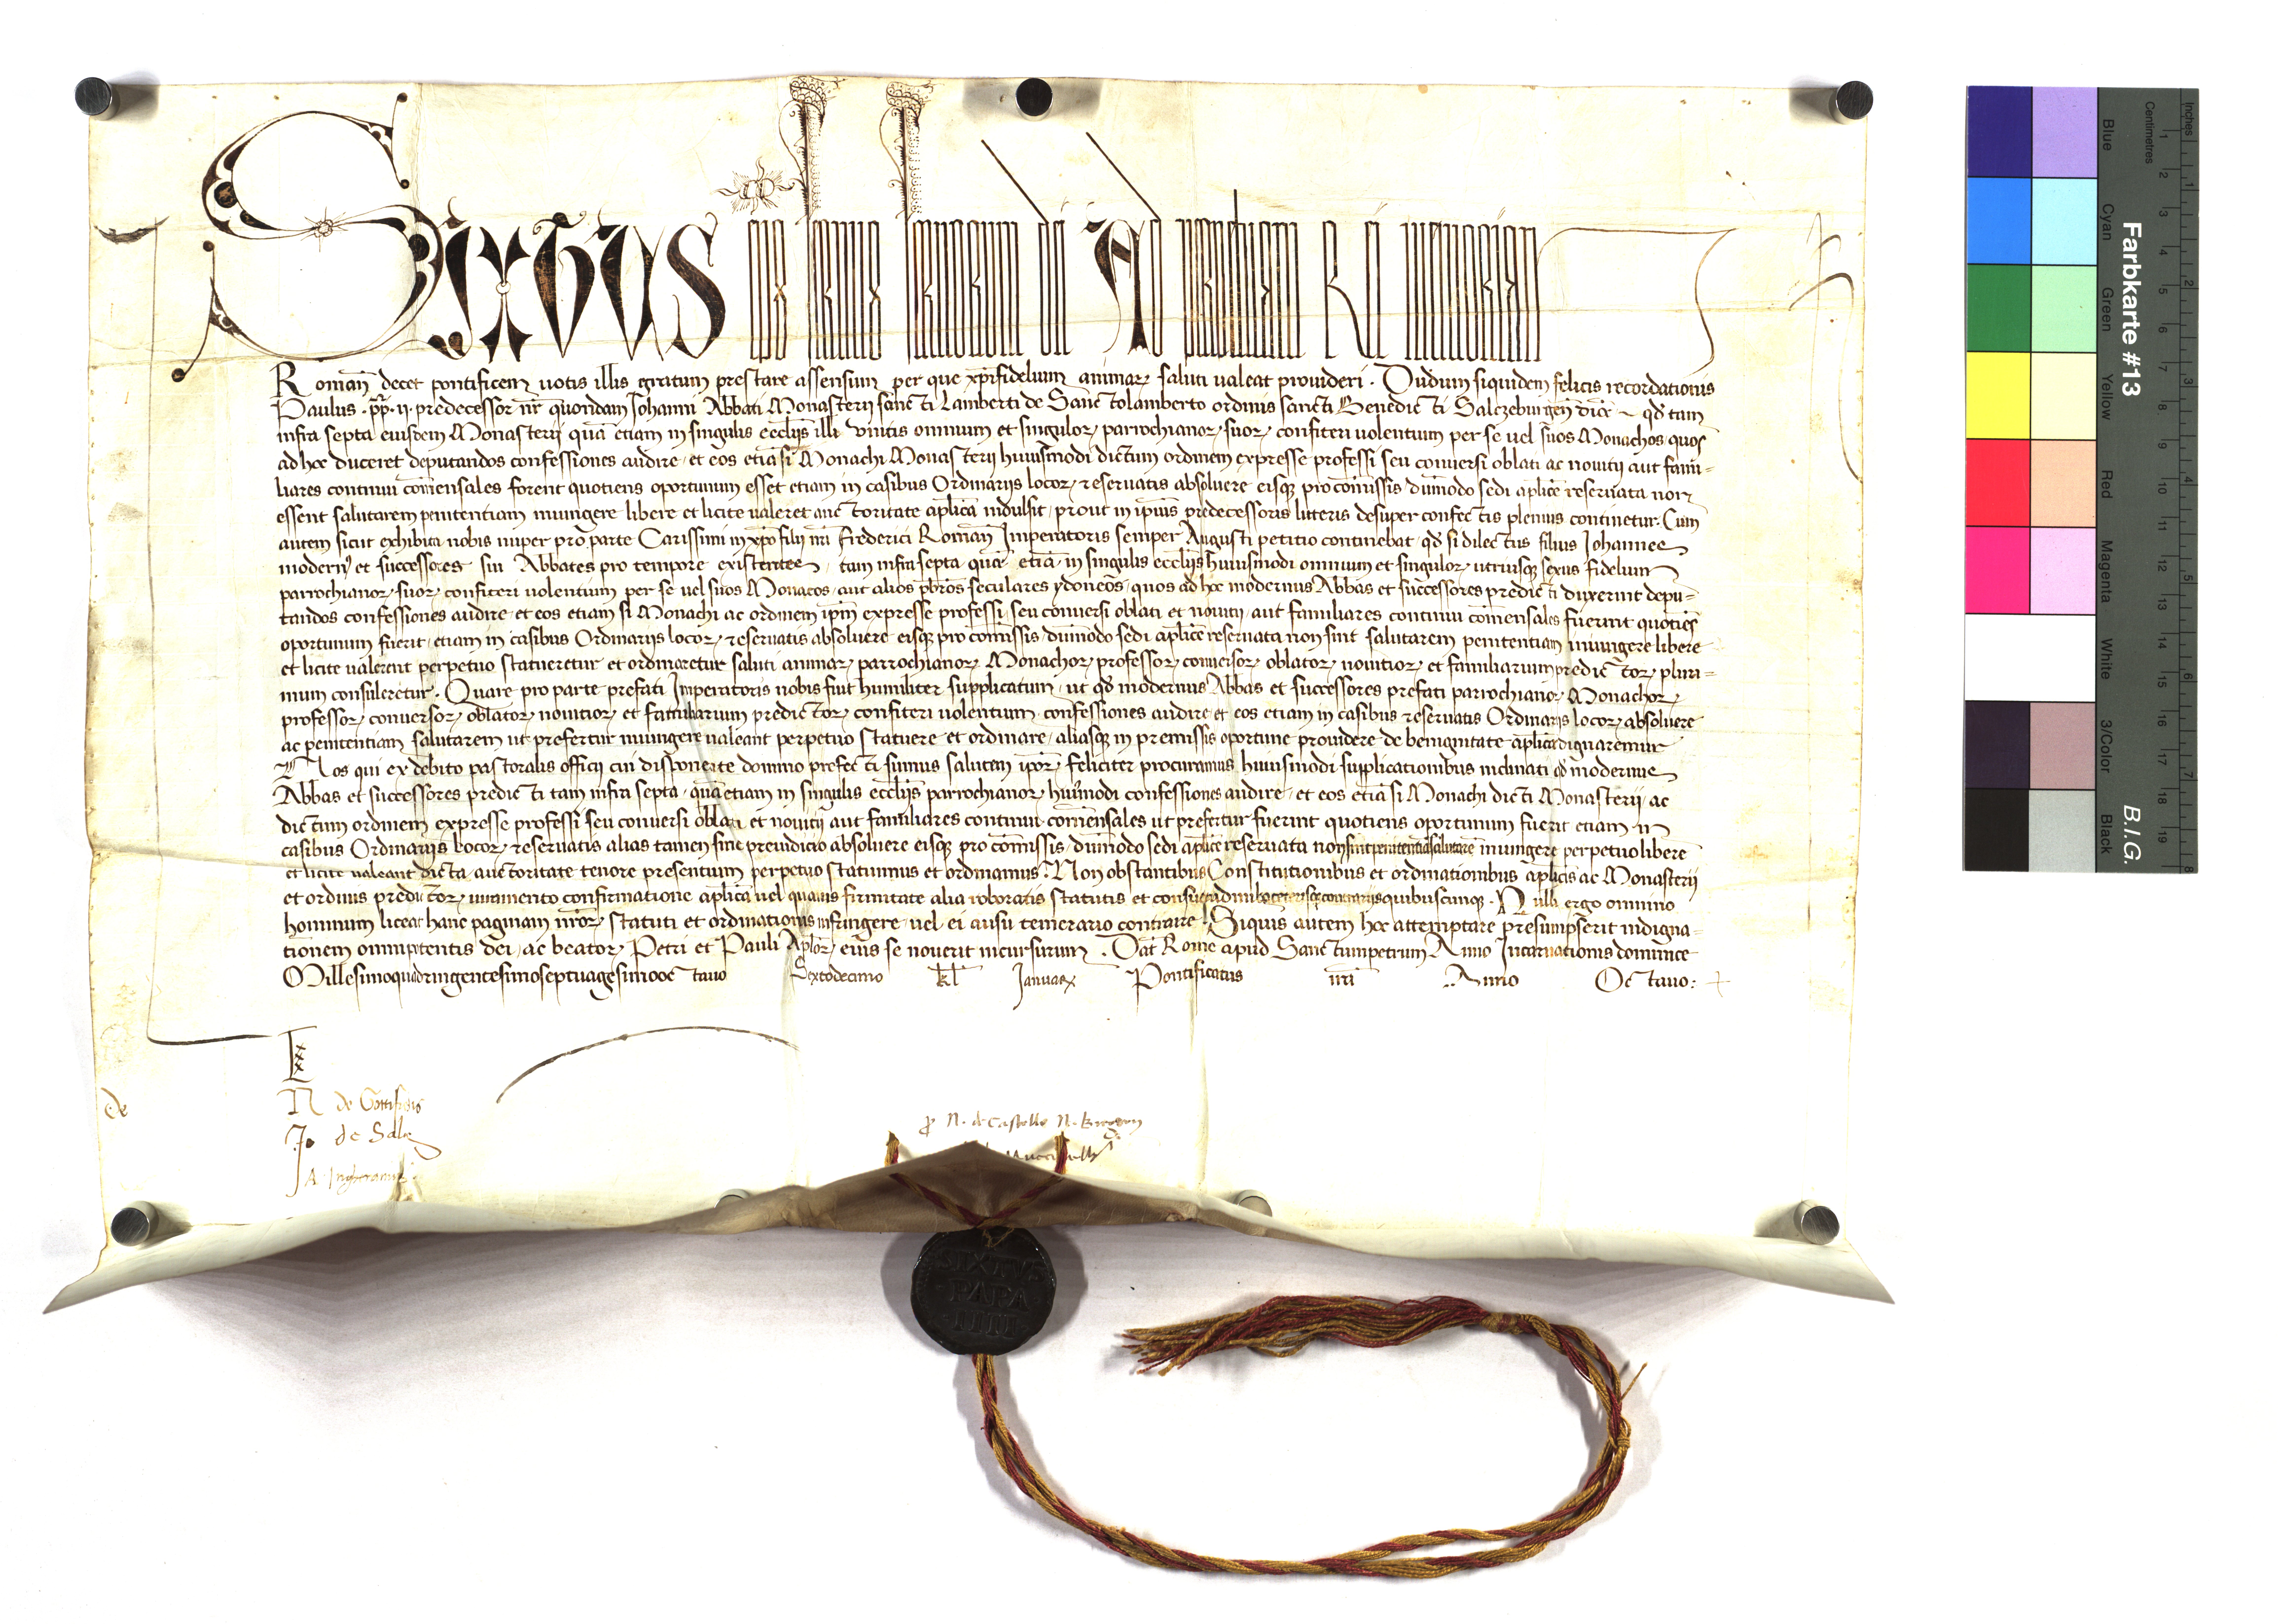 Sixtus ep̄s seruus seruorum dei Ad perpetuam Rei memoriam
Roman̄ decet pontificem uotis illis gratum prestare assensum per que xp̄ifidelium animar̨ saluti ualeat prouideri · Dudum siquidem felicis recordationis
Paulus · pp̄ · ii · predecessor nr̄ quondam Iohanni Abbati Monasterij sancti Lamberti de Sanctolamberto ordinis sancti Benedicti Salczeburgen̄ dioc̄ qđ tam
infra septa eiusdem Monasterij quā etiam in singulis ecclijs illi vnitis omnium et singulor̨ parrochianor̨ suor̨ confiteri uolentium per se uel suos Monachos quos
ad hoc duceret deputandos confessiones audire et eos etiā si Monachi Monasterij huiusmodi dictum ordinem expresse professi seu conuersi oblati ac nouitij aut fami=
liares continui com̄ensales forent quotiens oportunum esset etiam in casibus Ordinarijs locor̨ reseruatis absoluere eisq̨ pro com̄issis dum̄odo sedi ap̄lice reseruata non
essent salutarem penitentiam iniungere libere et licite ualeret auctoritate ap̄lica indulsit prout in ipsius predecessoris litteris desuper confectis plenius continetur. Cum
autem sicut exhibita nobis nuper pro parte Carissimi in xp̄o filij nr̄i Frederici Roman̄ Imperatoris semper Augusti petitio continebat qđ si dilectus filius Iohannes
modern̄ et successores sui Abbates pro tempore existentes tam infra septa quā etiā in singulis ecclijs huiusmodi omnium et singulor̨ utriusq̨ sexus fidelium
parrochianor̨ suor̨ confiteri uolentium per se uel suos Monacos aut alios pb̄ros seculares ydoneos quos ad hoc modernus Abbas et successores predicti duxerint depu=
tandos confessiones audire et eos etiam si Monachi ac ordinem ip̄m expresse professi seu conuersi oblati et nouitij aut familiares continui com̄ensales fuerint quotiēs
oportunum fuerit etiam in casibus Ordinarijs locor̨ reseruatis absoluere eisq̨ pro com̄issis dum̄odo sedi ap̄lice reseruata non sint salutarem penitentiam iniungere libere
et licite ualerent perpetuo statueretur et ordinaretur saluti animar̨ parrochianor̨ Monachor̨ professor̨ conuersor̨ oblator̨ nouitior̨ et familiarium predictor̨ pluri=
mum consuleretur . Quare pro parte prefati Imperatoris nobis fuit humiliter supplicatum ut qđ modernus Abbas et successores prefati parrochianor̨ Monachor̨
professor̨ conuersor̨ oblator̨ nouitior̨ et familiarium predictor̨ confiteri uolentium confessiones audire et eos etiam in casibus reseruatis Ordinarijs locor̨ absoluere
ac penitentiam salutarem ut prefertur iniungere ualeant perpetuo statuere et ordinare aliasq̨ in premissis oportune prouidere de benignitate ap̄lica dignaremur
Nos qui ex debito pastoralis officij cui disponente domino prefecti sumus salutem ip̄or̨ feliciter procuramus huiusmodi supplicationibus inclinati qđ modernus
Abbas et successores predicti tam infra septa quā etiam in singulis ecclijs parrochianor̨ hmōi confessiones audire et eos etiā si Monachi dicti Monasterij ac
dictum ordinem expresse professi seu conuersi oblati et nouitij aut familiares continui com̄ensales ut prefertur fuerint quotiens oportunum fuerit etiam in
casibus Ordinarijs locor̨ reseruatis alias tamen sine preiudicio absoluere eisq̨ pro com̄issis dum̄odo sedi ap̄lice reseruata non sint penitentiā salutarē iniungere perpetuo libere
et licite ualeant dicta auctoritate tenore presentium perpetuo statuimus et ordinamus. Non obstantibus Constitutionibus et ordinationibus ap̄licis ac Monasterij
et ordinis predictor̨ iuramento confirmatione ap̄lica uel quauis firmitate alia roboratis statutis et consuetudinibꝫ ceterisq̨ contrarijs quibuscunq̨ . Nulli ergo omnino
hominum liceat hanc paginam nr̄or̨ statuti et ordinationis infringere uel ei ausu temerario contraire . Siquis autem hoc attemptare presumpserit indigna=
tionem omnipotentis dei ac beator̨ Petri et Pauli Ap̄lor̨ eius se nouerit incursurum . Dat̄ Rome apud Sanctumpetrum Anno Incarnationis dominice
Millesimoquadringentesimoseptuagesimooctauo Sextodecimo kl̄ Januar̨ Pontificatus nr̄i Anno Octauo:
L
xxx
N de Gottifredis
Jo de Sale
A. Inghiramis
de
p̄ N. de Castello N. Bregeon
SIXTVS
PAPA
IIII
Farbkarte #13
B.I.G.
Inches
Centimetres
Blue
Cyan
Green
Yellow
Red
Magenta
White
3/Color
Black
1 2 3 4 5 6 7 8 9 10 11 12 13 14 15 16 17 18 19
1 2 3 4 5 6 7 8